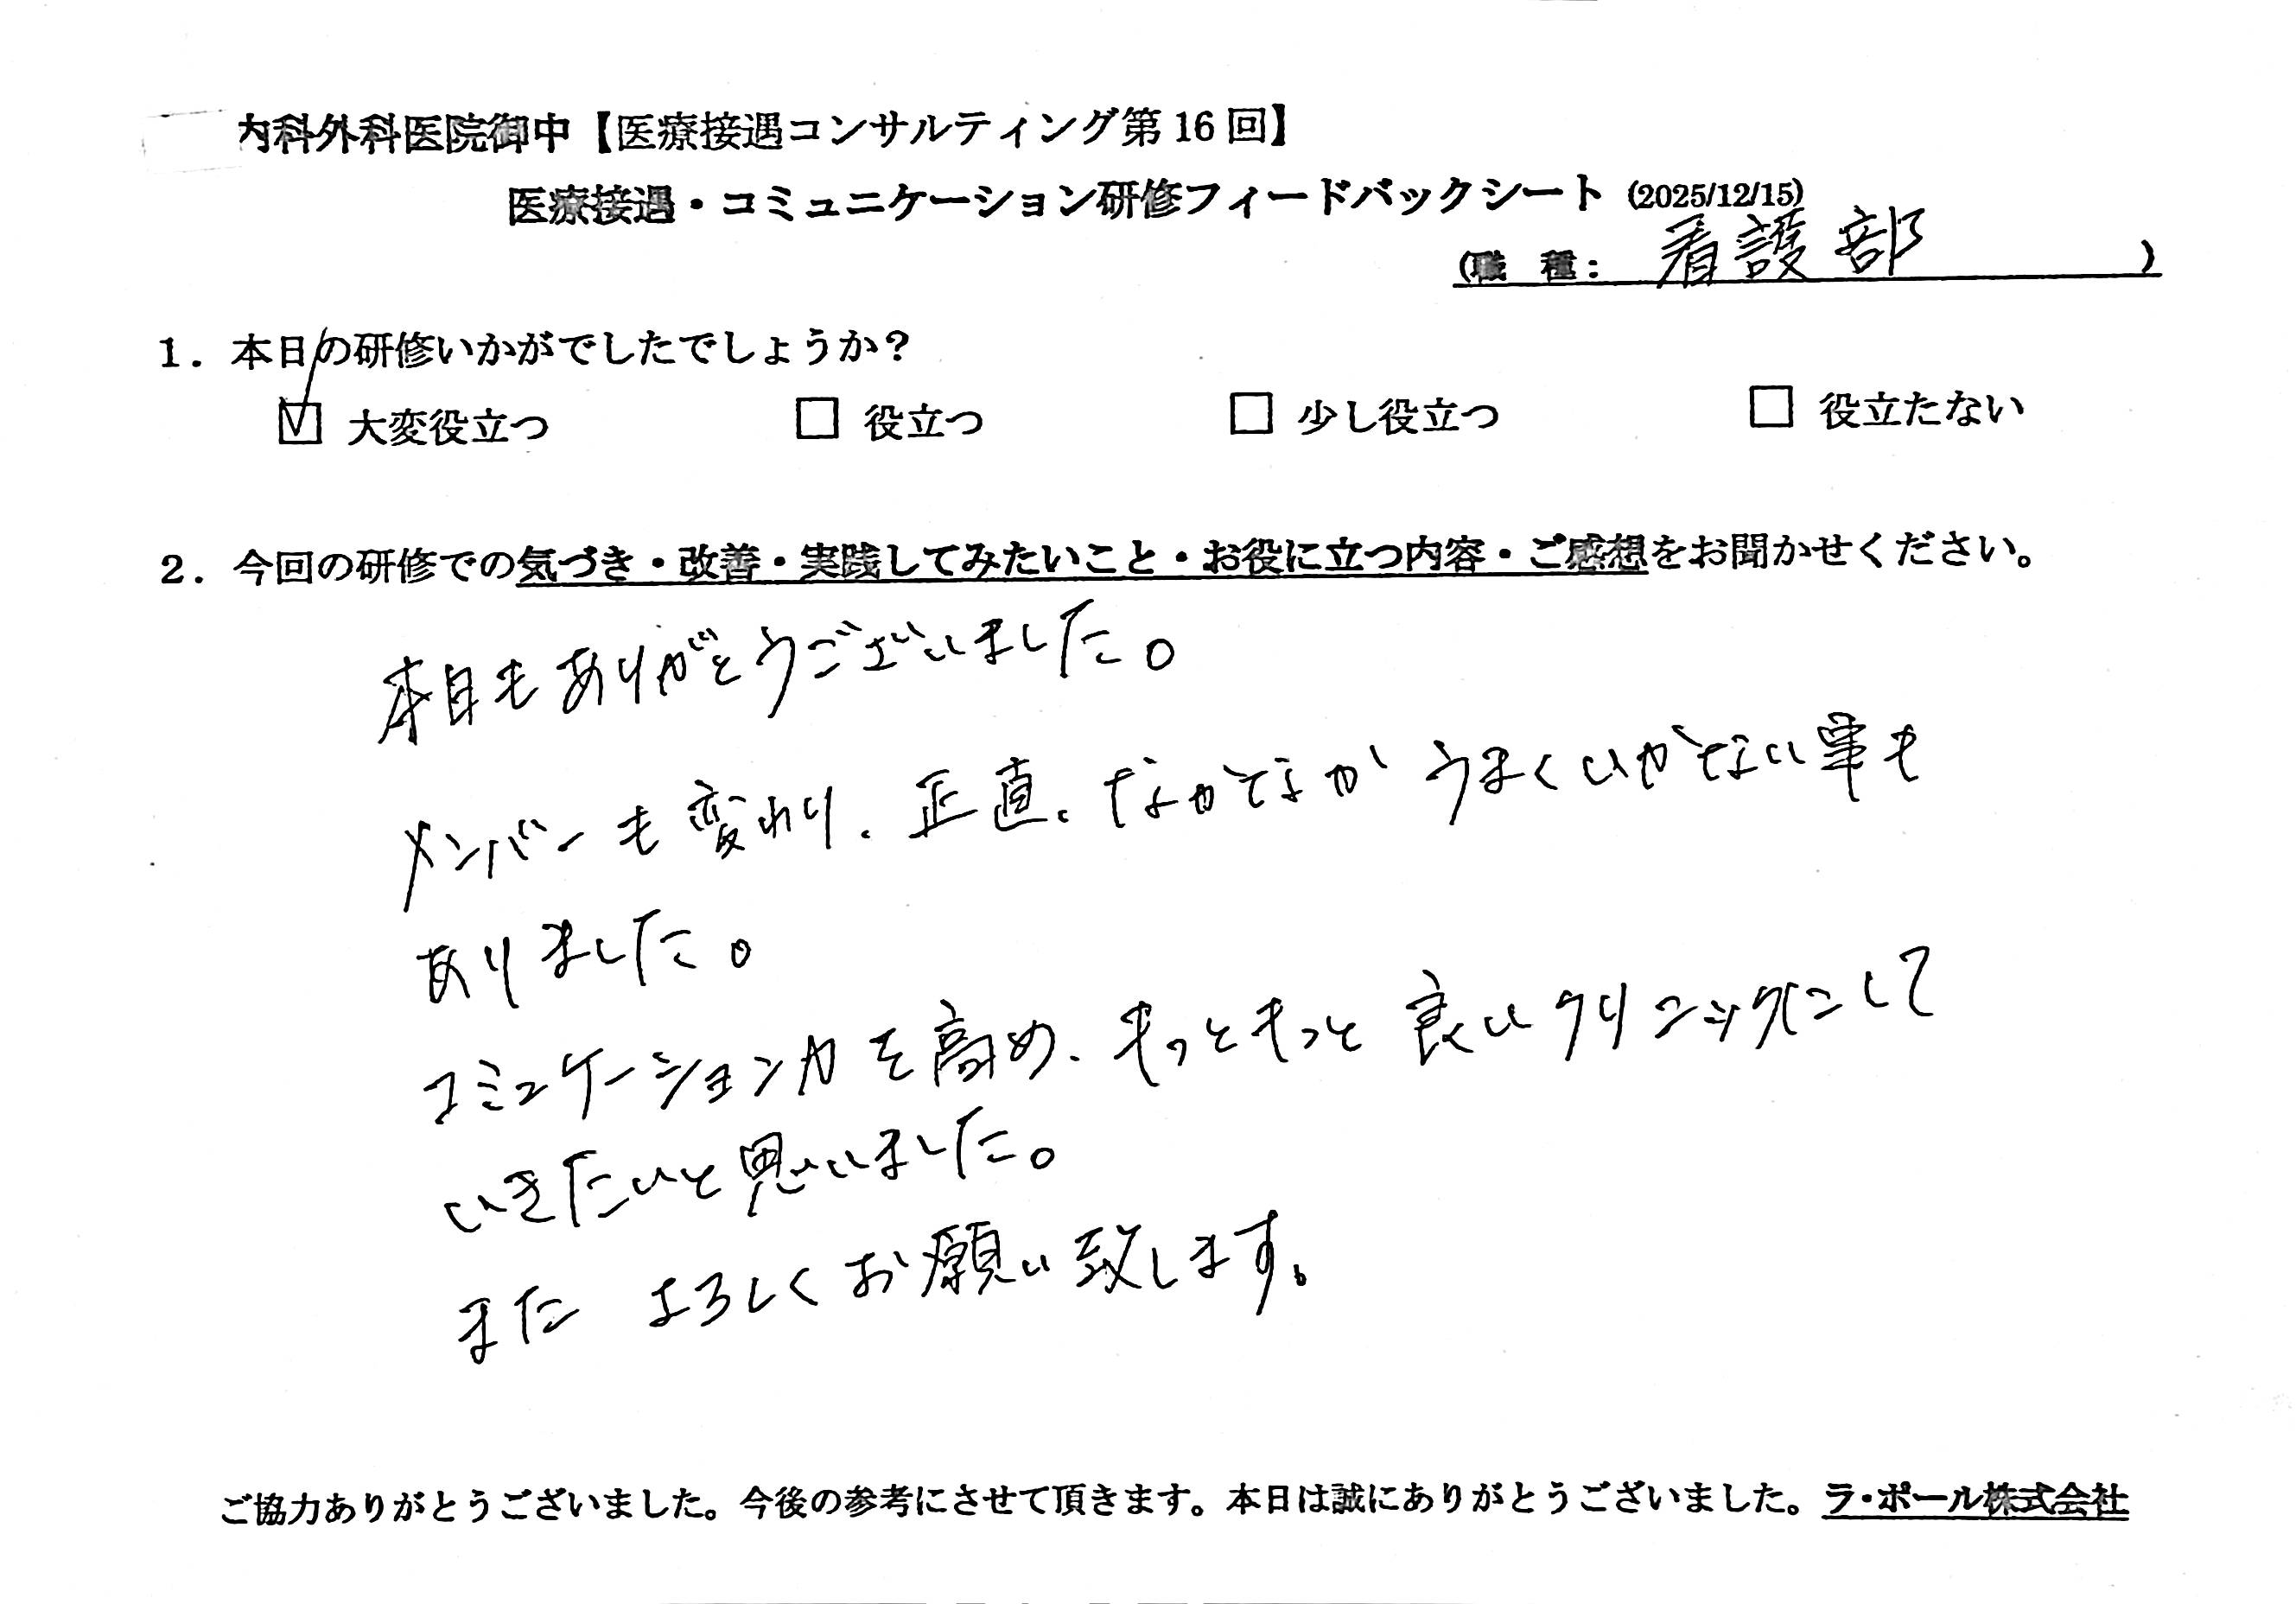 内科外科医院御中【医療接遇コンサルティング第16回】
医療接遇・コミュニケーション研修フィードバックシート (2025/12/15)
(職 種: 看護部 )
1. 本日の研修いかがでしたでしょうか?
☑ 大変役立つ □ 役立つ □ 少し役立つ □ 役立たない
2. 今回の研修での気づき・改善・実践してみたいこと・お役に立つ内容・ご感想をお聞かせください。
本日もありがとうございました。
メンバーも変わり、正直、なかなかうまくいかない事も
ありました。
コミュニケーション力を高め、もっともっと良いクリニックにして
いきたいと思いました。
また よろしくお願い致します。
ご協力ありがとうございました。今後の参考にさせて頂きます。本日は誠にありがとうございました。ラ・ポール株式会社